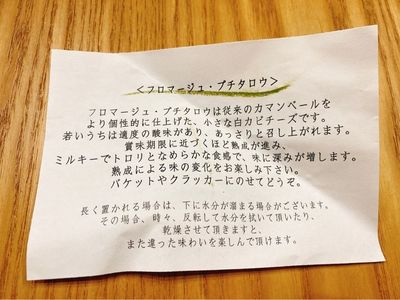 ＜フロマージュ・プチタロウ＞
フロマージュ・プチタロウは従来のカマンベールを
より個性的に仕上げた、小さな白カビチーズです。
若いうちは適度の酸味があり、あっさりと召し上がれます。
賞味期限に近づくほど熟成が進み、
ミルキーでトロリとなめらかな食感で、味に深みが増します。
熟成による味の変化をお楽しみ下さい。
バケットやクラッカーにのせてどうぞ。
長く置かれる場合は、下に水分が溜まる場合がございます。
その場合、時々、反転して水分を拭いて頂いたり、
乾燥させて頂きますと、
また違った味わいを楽しんで頂けます。